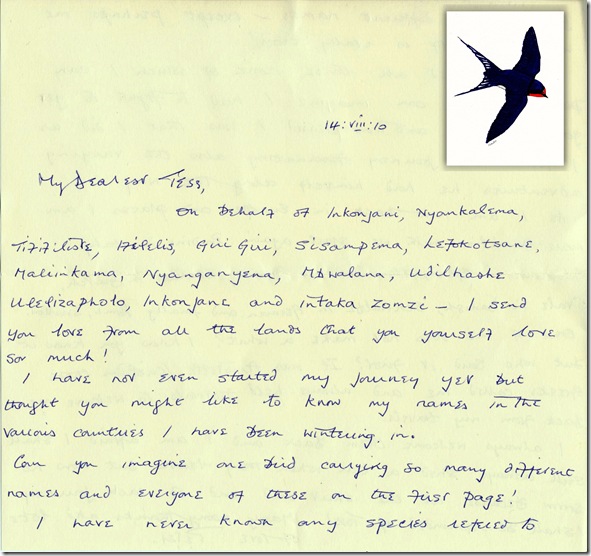 14:viii:10
My Dearest Tess,
On Behalf of Inkonjani, Nyankalema,
Giri Giri, Sisampema, Lefokotsane,
Malinkama, Nyanganyena, Mbwalana, Udilhashe
Ulelizapholo, Inkonjane and intaka zomzi – I send
you love from all the lands that you yourself love
so much!
I have not even started my journey yet but
thought you might like to know my names in the
various countries I have been wintering in.
Can you imagine one bird carrying so many different
names and everyone of these on the first page!
I have never known any species refered to